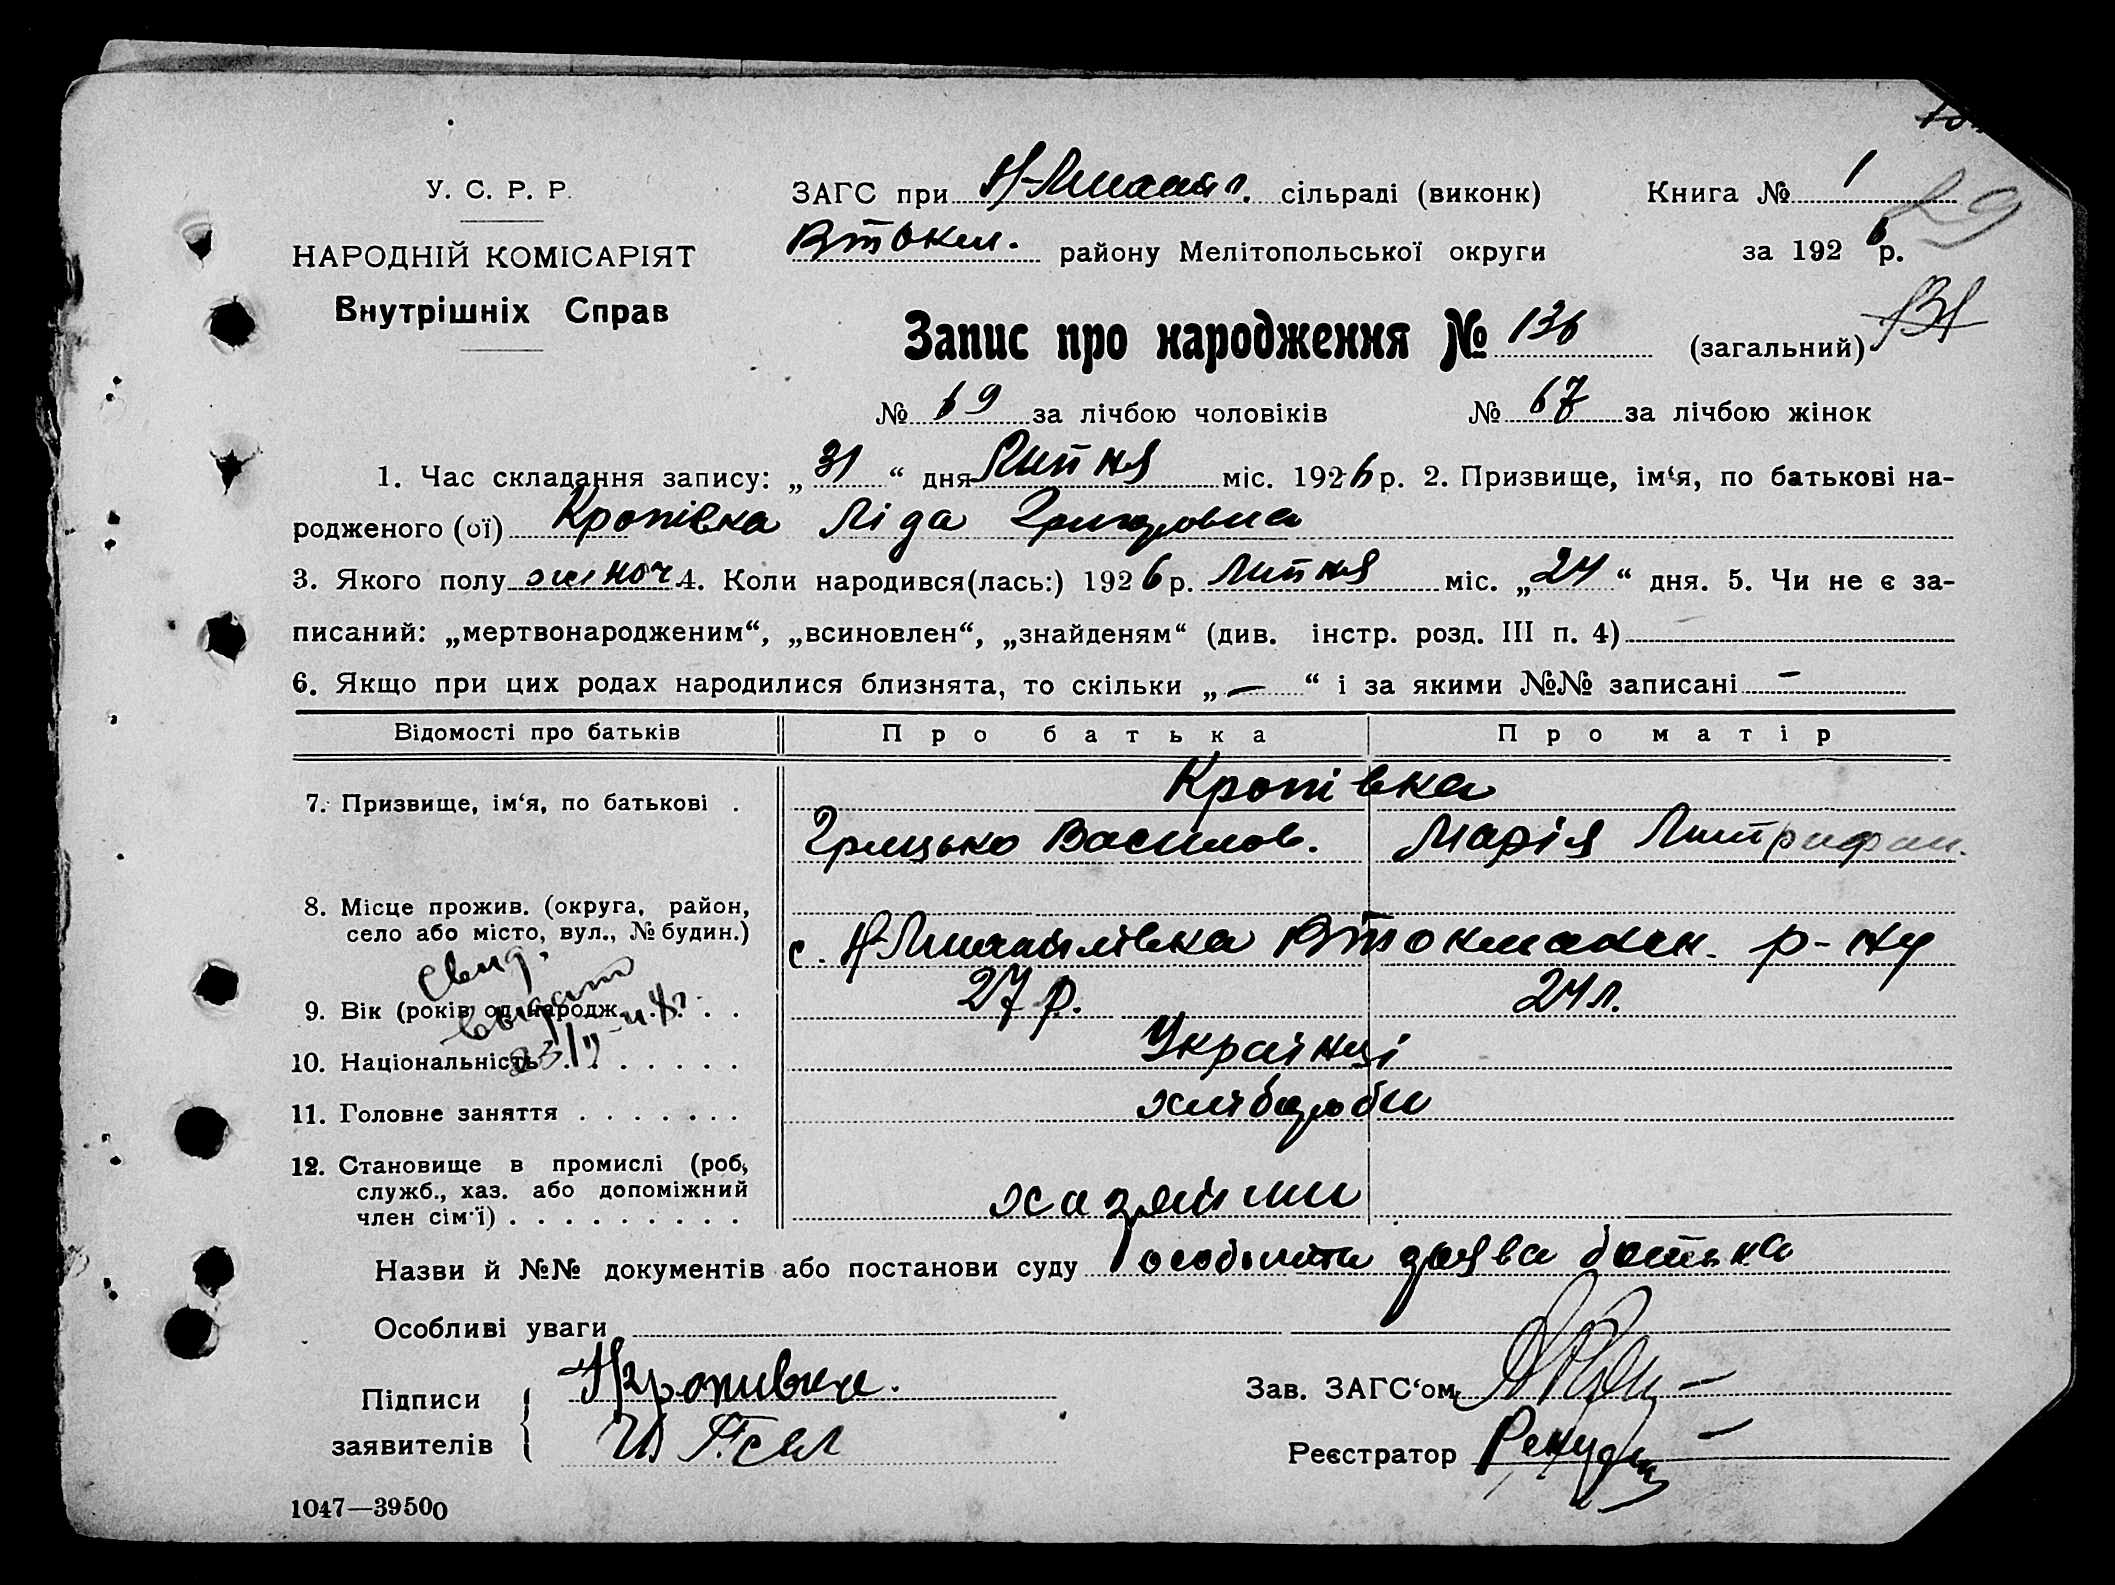 У. С. Р. Р.
НАРОДНІЙ КОМІСАРІЯТ
Внутрішніх Справ
ЗАГС при Н-Михайл. сільраді (виконк)
Втокм. району Мелітопольської округи
Книга № 1
29
за 1926 р.
Запис про народження № 136 (загальний)
№ 69 за лічбою чоловіків № 67 за лічбою жінок
1. Час складання запису: „ 31 “ дня Липня міс. 1926 р. 2. Призвище, ім‘я, по батькові на-
родженого (ої) Кропівка Ліда Григоровна
3. Якого полу жіноч 4. Коли народився(лась:) 1926 р. Липня міс. „ 24 “ дня. 5. Чи не є за-
писаний: „мертвонародженим“, „всиновлен“, „знайденям“ (див. інстр. розд. III п. 4)
6. Якщо при цих родах народилися близнята, то скільки „ — “ і за якими №№ записані –
Відомості про батьків Про батька Про матір
7. Призвище, ім‘я, по батькові . Кропівка
Грицько Васильов. Марія Митрофан.
8. Місце прожив. (округа, район,
село або місто, вул., № будин.) с. Н-Михайлівка Втокмацьк. р-ну
9. Вік (років) од народж. . . . . 27 р. 24 л.
10. Національність . . . . . . . Українці
11. Головне заняття . . . . . . . хлібороби
12. Становище в промислі (роб,
служб., хаз. або допоміжний
член сім‘ї) . . . . . . . . . хазяїни
Назви й №№ документів або постанови суду особиста заява батька
Особливі уваги
Підписи Кропивка.
заявителів
Зав. ЗАГС‘ом
Реєстратор
1047—39500